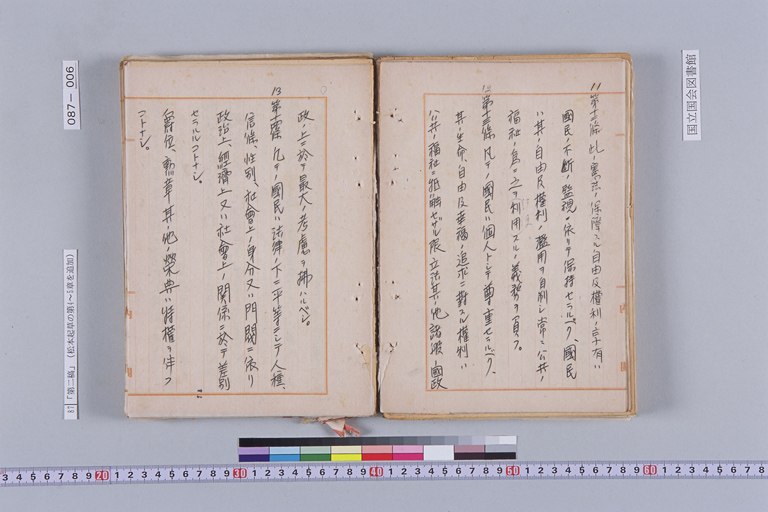 国立国会図書館
11 第十二條 此ノ憲法ノ保障スル自由及權利ノ享有ハ
國民ノ不斷ノ監視ニ依リテ保持セラルベク、國民
ハ其ノ自由及權利ノ濫用ヲ自制シ常ニ公共ノ
福祉ノ爲ニ之ヲ利用スルノ義務ヲ負フ。
12 第十三條 凡テノ國民ハ個人トシテ尊重セラルベク、
其ノ生命、自由及幸福ノ追求ニ對スル權利ハ
公共ノ福祉ニ抵触セザル限立法其ノ他諸般ノ國政
政ノ上ニ於テ最大ノ考慮ヲ拂ハルベシ。
13 第十四條 凡テノ國民ハ法律ノ下ニ平等ニシテ人種、
信條、性別、社會上ノ身分又ハ門閥ニ依リ
政治上、經濟上又ハ社會上ノ關係ニ於テ差別
セラルルコトナシ。
爵位、勲章其ノ他ノ榮典ハ特權ヲ伴フ
コトナシ。
087- 006
87 「第二稿」（松本起草の第4～5章を追加）
3 4 5 6 7 8 9 20 1 2 3 4 5 6 7 8 9 30 1 2 3 4 5 6 7 8 9 40 1 2 3 4 5 6 7 8 9 50 1 2 3 4 5 6 7 8 9 60 1 2 3 4 5 6 7 8